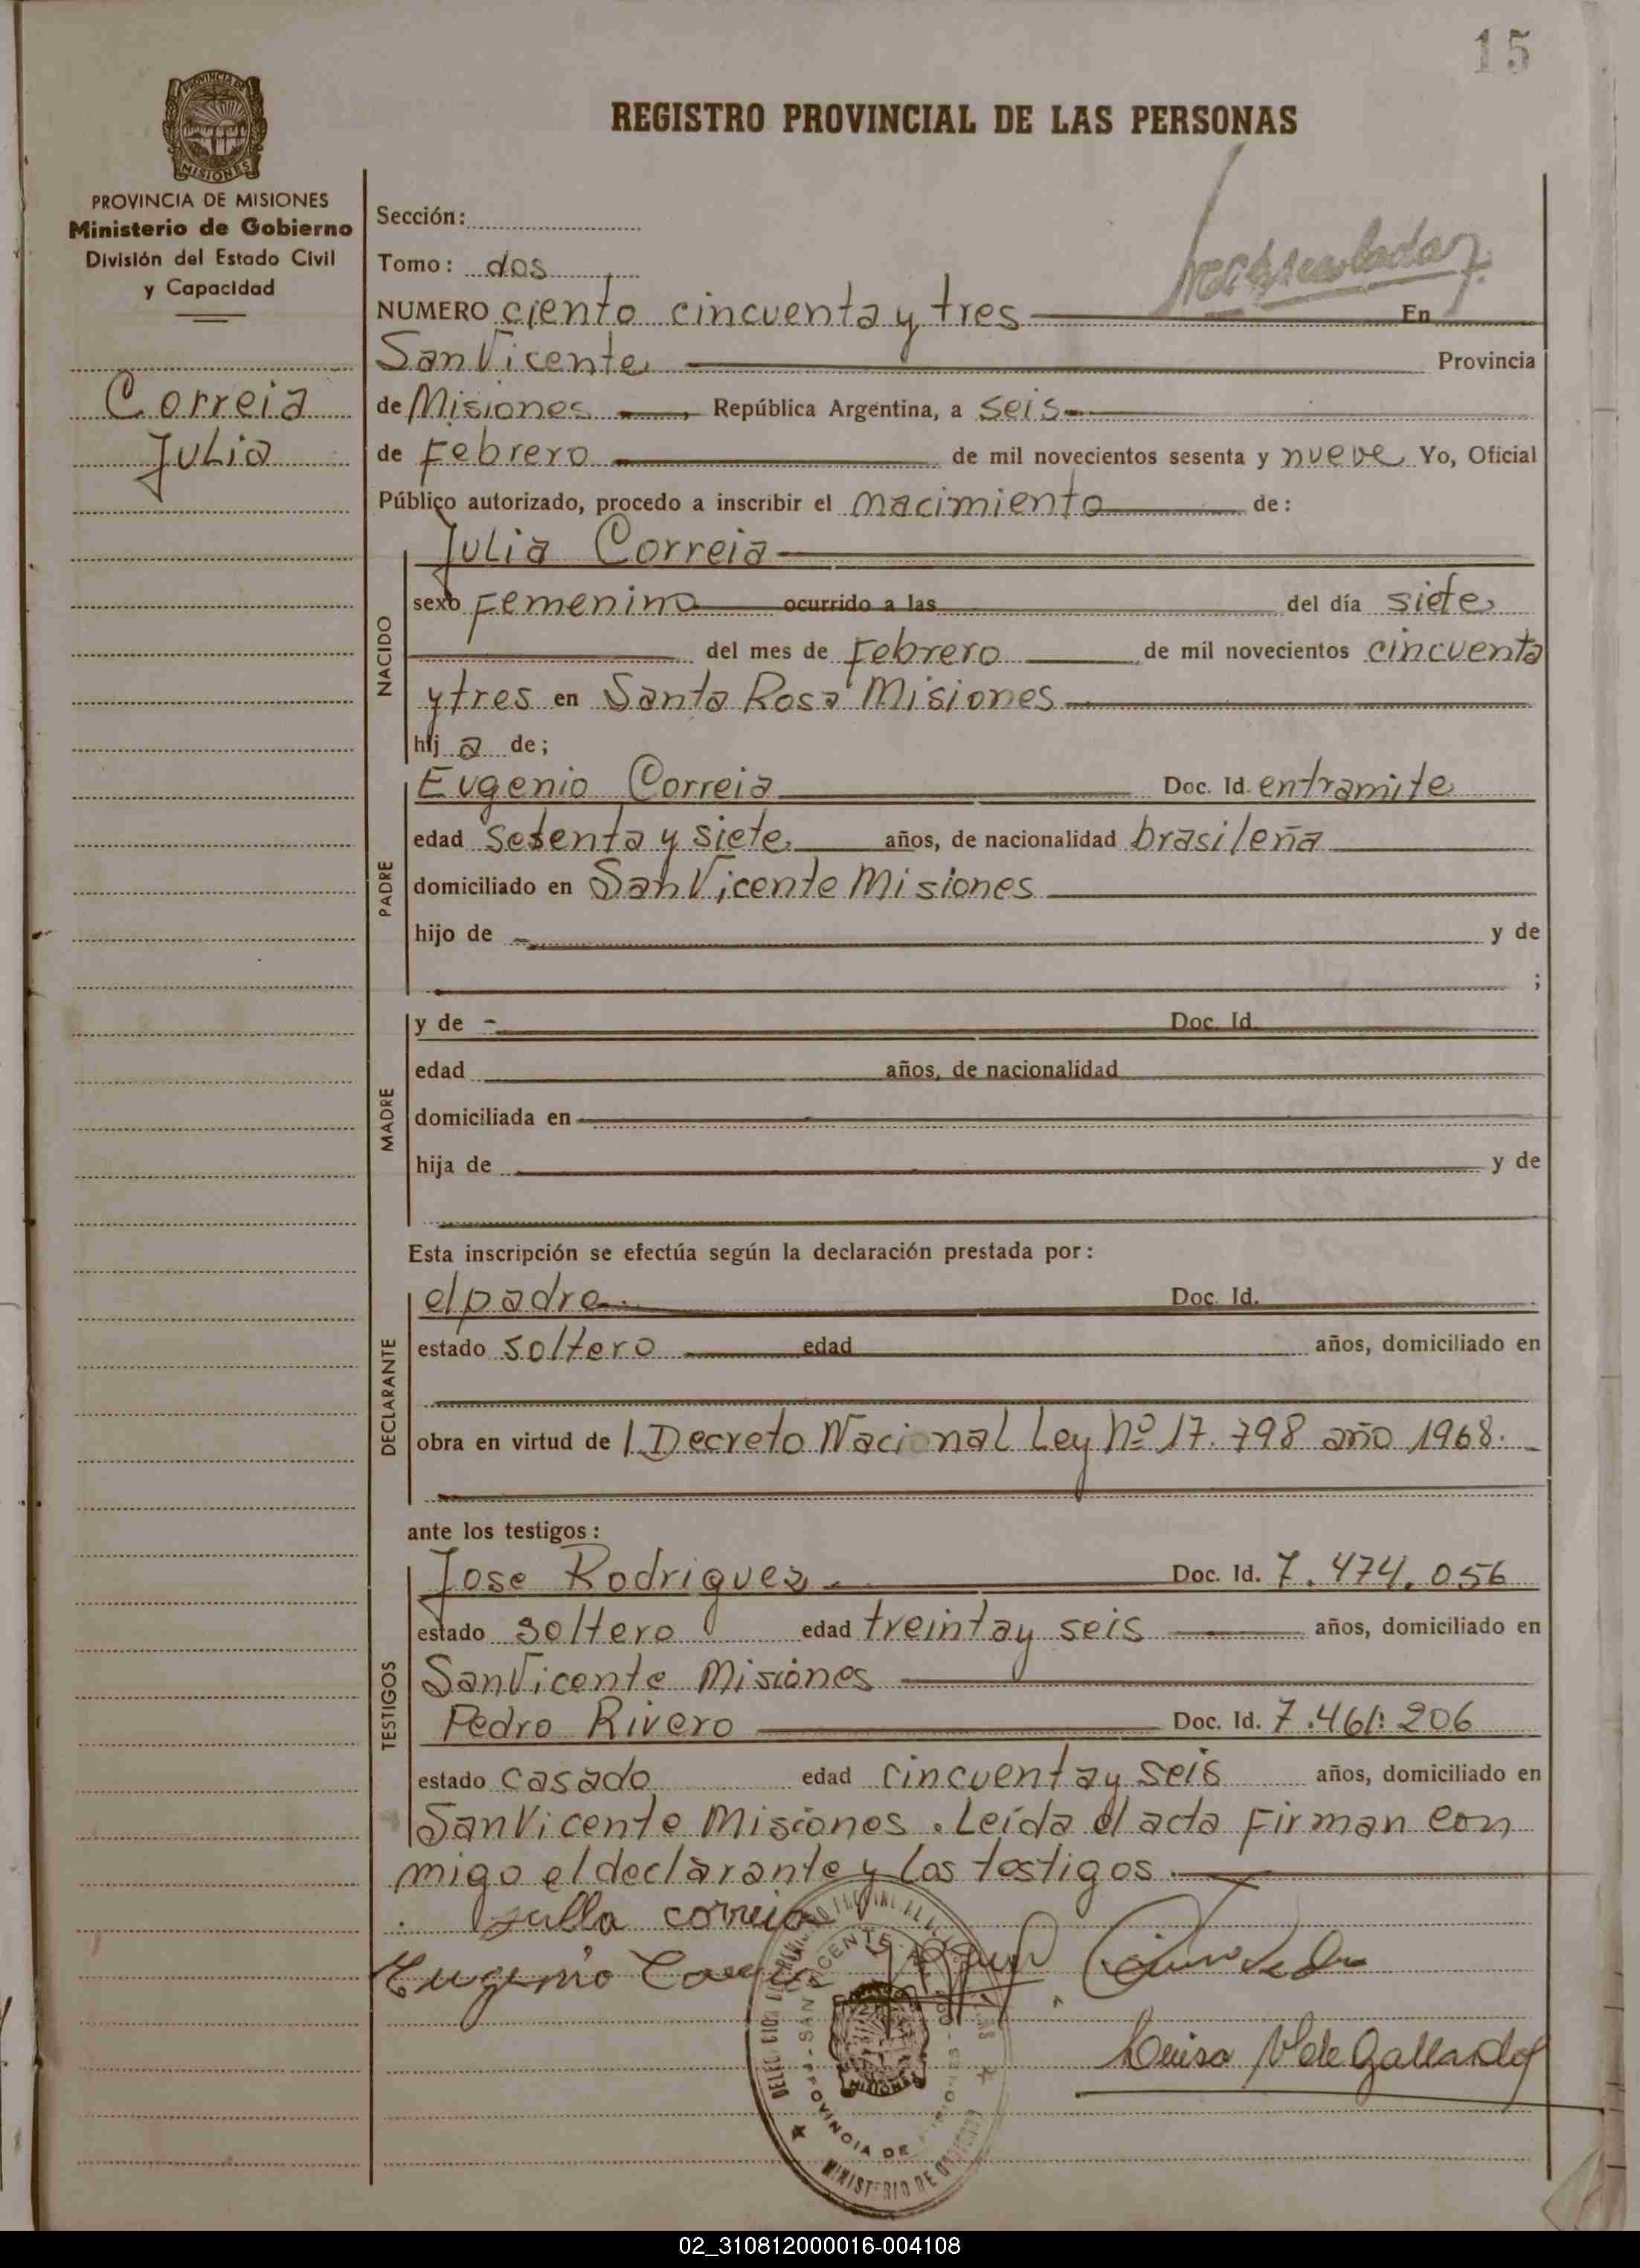 15
REGISTRO PROVINCIAL DE LAS PERSONAS
MISIONES
PROVINCIA DE MISIONES
Ministerio de Gobierno
División del Estado Civil
y Capacidad
Correia
Julia
Sección:
Tomo: dos
NUMERO ciento cincuenta y tres En
San Vicente Provincia
de Misiones República Argentina, a seis
de Febrero de mil novecientos sesenta y nueve Yo, Oficial
Público autorizado, procedo a inscribir el nacimiento de:
Julia Correia
NACIDO
sexo Femenino ocurrido a las del día siete
del mes de Febrero de mil novecientos cincuenta
y tres en Santa Rosa Misiones
hij a de;
PADRE
Eugenio Correia Doc. Id. entramite
edad setenta y siete años, de nacionalidad brasileña
domiciliado en San Vicente Misiones
hijo de y de
;
MADRE
y de Doc. Id.
edad años, de nacionalidad
domiciliada en
hija de y de
Esta inscripción se efectúa según la declaración prestada por:
DECLARANTE
el padre Doc. Id.
estado soltero edad años, domiciliado en
obra en virtud de l Decreto Nacional Ley Nº 17.798 año 1968.
ante los testigos:
TESTIGOS
Jose Rodriguez Doc. Id. 7.474.056
estado soltero edad treinta y seis años, domiciliado en
San Vicente Misiones
Pedro Rivero Doc. Id. 7.461.206
estado casado edad cincuenta y seis años, domiciliado en
San Vicente Misiones. Leída el acta Firman con
migo el declarante y los testigos.
Julla correia
Eugenio
Luisa V de Gallardo
SAN VICENTE
PROVINCIA DE MISIONES
MINISTERIO DE GOBIERNO
MISIONES
02_310812000016-004108